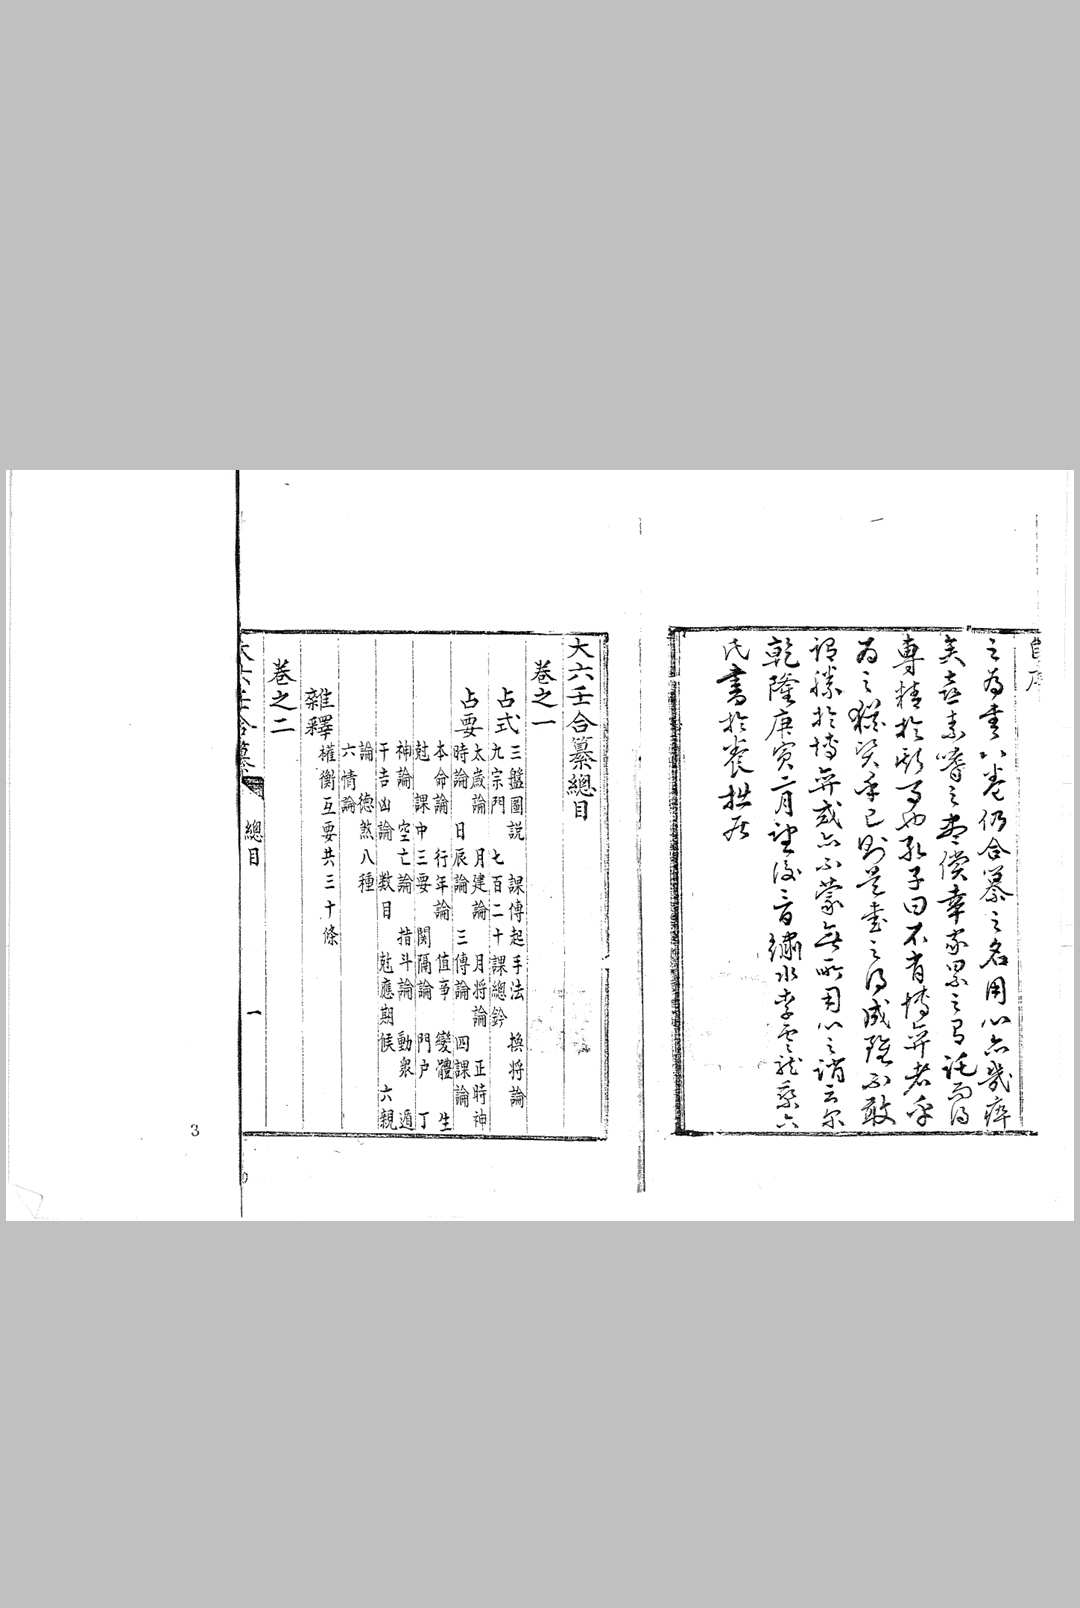 自序
之為書八卷仍合纂之名用心亦幾瘁
矣喜素嗜之
專精於斯乎孔子曰不有博弈者乎
為之猶賢乎已則是書之得成雖不敢
謂勝於博弈或亦不蒙無所用心之誚云爾
乾隆庚寅二月望後三日繡水李
氏書於養拙居
大六壬合纂總目
卷之一
占式
三盤圖說 課傳起手法 換將論
九宗門 七百二十課總鈐
占要
太歲論 月建論 月将論 正時神
時論 日辰論 三傳論 四課論
本命論 行年論 值事 變體 生
尅 課中三要 関隔論 門户 丁
神論 空亡論 指斗論 動衆 遁
干吉凶論 数目 尅應期候 六親
論 德煞八種
六情論
雜釋
權衡互要共三十條
卷之二
大六壬合纂 總目 一
3